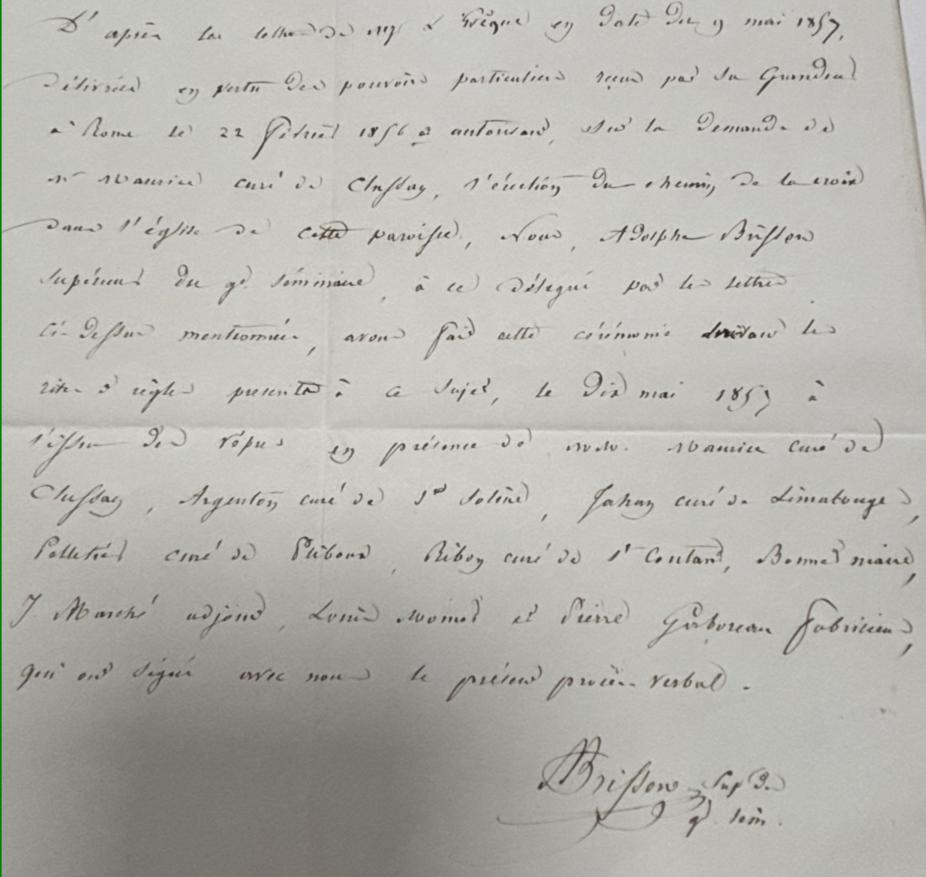 D'après les lettres de Mgr L'Evêque en date du 9 mai 1857,
délivrées en vertu des pouvoirs particuliers reçus par Sa Grandeur
à Rome le 22 février 1856 & autorisant, sur la demande de
Mr Maurice curé de Clussay, l'érection du chemin de la croix
dans l'église de cette paroisse, Nous, Adolphe Brisson
supérieur du gd séminaire, à ce délégué par les lettres
ci-dessus mentionnées, avons fait cette cérémonie suivant les
rites & règles prescrits à ce sujet, le dix mai 1857 à
l'issue des vêpres en présence de MM. Maurice curé de
Clussay, Argenton curé de Ste Soline, Jahan curé de Limalonges,
Pelletier curé de Pliboux, Riboy curé de St Coutant, Bonnet maire,
J Marché adjoint, Louis et Pierre fabriciens,
qui ont signé avec nous le présent procès-verbal.
ABrisson Sup de
gd sém.